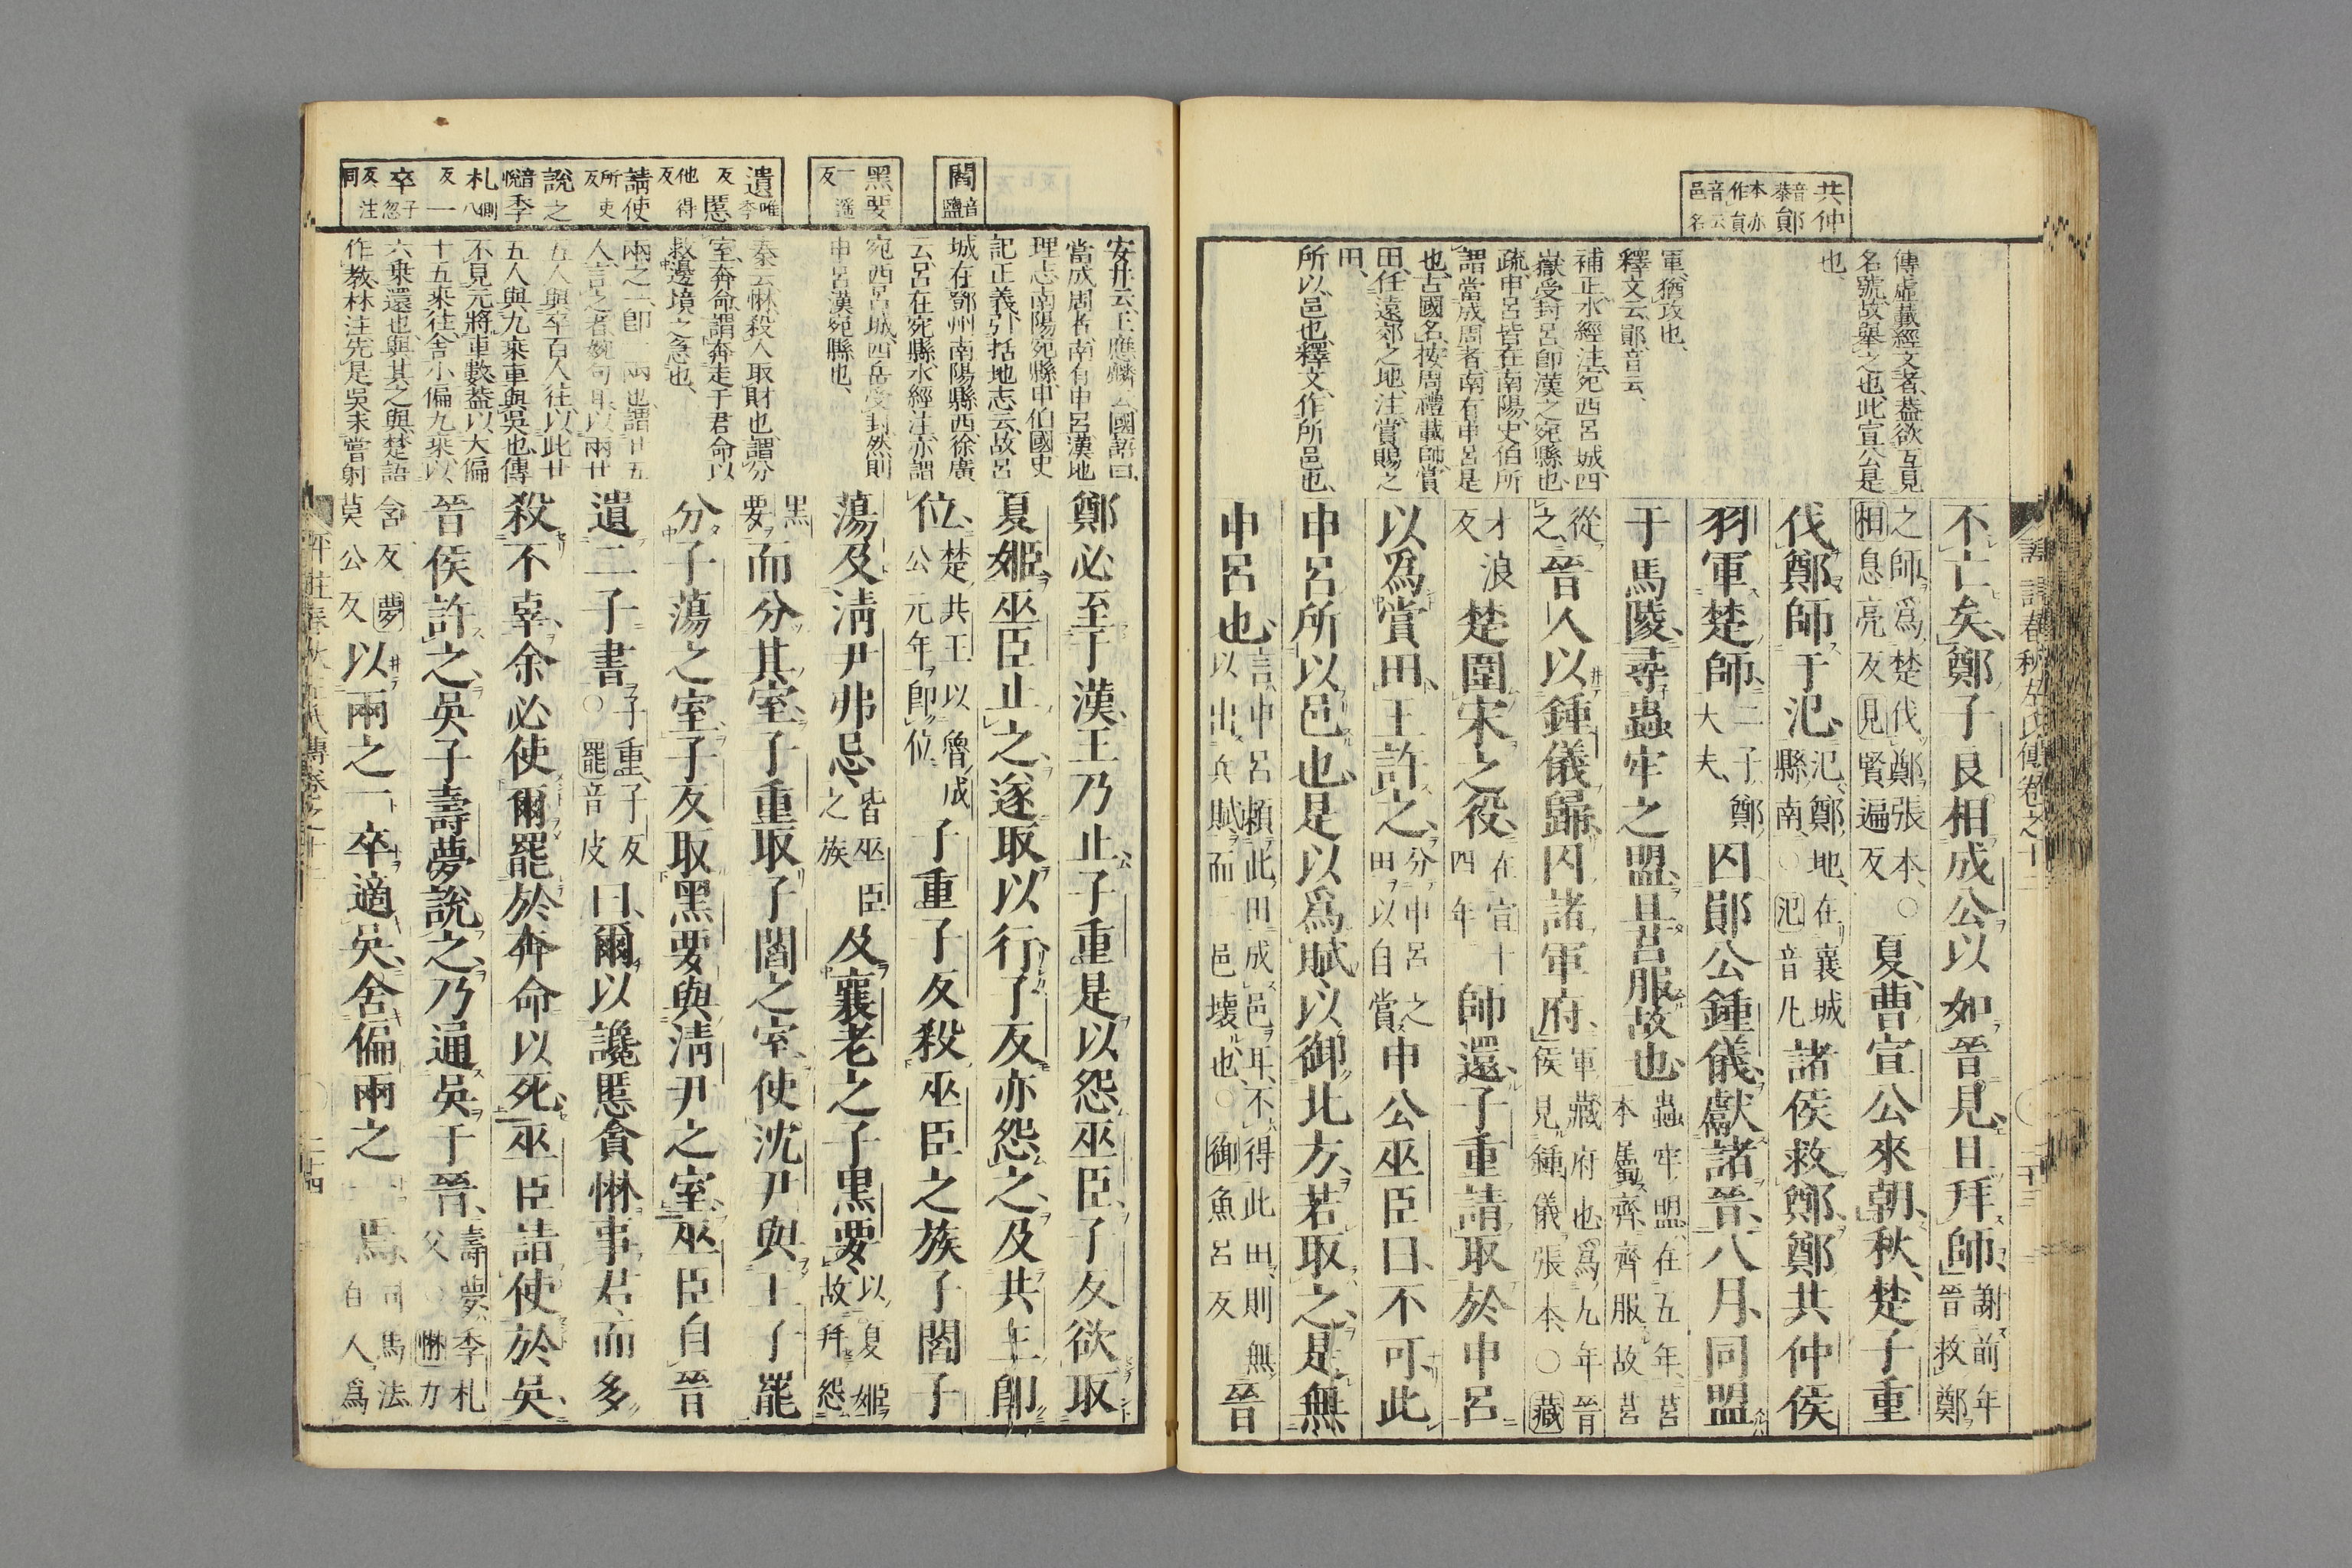 共仲
音恭鄖
本亦作員
音云邑名
傳虛載經文者、蓋欲互見
名號、故舉之也、此宣公是
也、
軍、猶攻也、
釋文云、鄖、音云、
補正、水經注、宛西呂城、四
嶽受封呂、卽漢之宛縣也、
疏、申呂皆在南陽、史伯所
謂當成周者南有申呂是
也、古國名、按周禮載師、賞
田、任遠郊之地、注、賞賜之
田、
所以、邑也、釋文、作所邑也、
不亡矣、鄭子良相成公以如晉見、且拜師、謝前年晉救鄭
之師、爲楚伐鄭張本、○相息亮反見賢遍反夏、曹宣公來朝、秋、楚子重
伐鄭師于氾、氾、鄭地、在襄城縣南、○氾音凡諸侯救鄭、鄭共仲侯
羽軍楚師、二子、鄭大夫、囚鄖公鍾儀、獻諸晉、八月、同盟
于馬陵、尋蟲牢之盟、且莒服故也、蟲牢盟、在五年、莒本屬齊、齊服、故莒
從之、晉人以鍾儀歸、囚諸軍府、軍藏府也、爲九年晉侯見鍾儀張本、○藏
才浪反楚圍宋之役、在宣十四年師還、子重請取於申呂
以爲賞田、王許之、分申呂之田以自賞、申公巫臣曰、不可、此
申呂所以邑也、是以爲賦、以御北方、若取之、是無
申呂也、言、申呂賴此田成邑耳、不得此田、則無以出兵賦、而二邑壞也、○御魚呂反晉
閻音鹽
黑要
一遥反
遺唯季反慝
他得反
請使
所吏反
說之
音悅季
札側八反一
卒子忽反注同
安井云、王應麟云、國語曰、
當成周者、南有申呂、漢地
理志、南陽宛縣、申伯國、史
記正義、引括地志云、故呂
城、在鄧州南陽縣西、徐廣
云、呂在宛縣、水經注、亦謂
宛西呂城、四岳受封、然則
申呂漢宛縣也、
秦云、惏、殺人取財也、謂分
室、奔命、謂奔走于君命、以
救邊境之急也、
兩之一、卽一兩也、謂廿五
五人與卒百人往、以此廿
五人與九乘車與吳也、傳
不見元將車數、蓋以大偏
十五乘往、舍小偏九乘、以
六乘還也、與其之與、楚語
作教、林注、先是吳未嘗射
鄭必至于漢、王乃止、子重是以怨巫臣、子反欲取
夏姬、巫臣止之、遂取以行、子反亦怨之、及共王卽
位、楚共王以魯成公元年卽位子重子反殺巫臣之族子閻子
蕩及淸尹弗忌、皆巫臣之族及襄老之子黑要、以夏姬故幷怨
黑要而分其室、子重取子閻之室、使沈尹與王子罷
分子蕩之室、子反取黑要與淸尹之室、巫臣自晉
遺二子書、子重、子反○罷音皮曰、爾以讒慝貪惏事君、而多
殺不辜、余必使爾罷於奔命以死、巫臣請使於吳、
晉侯許之、吳子壽夢說之、乃通吳于晉、壽夢、季札父○惏力
含反夢莫公反以兩之一卒適吳、舍偏兩之一焉、司馬法、百人爲